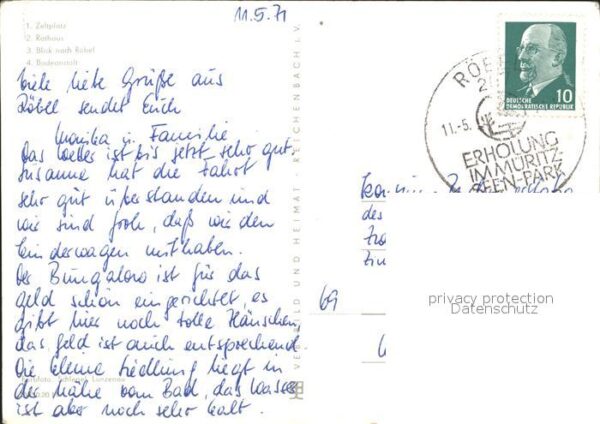 11.5.71
1. Zeltplatz
2. Rathaus
3. Blick nach Röbel
4. Badeanstalt
Viele liebe Grüße aus
Röbel sendet Euch
Monika u. Familie
Das Wetter ist bis jetzt sehr gut.
Susanne hat die Fahrt
sehr gut überstanden und
wir sind froh, daß wir den
Kinderwagen mithaben.
Der Bungalow ist für das
Geld schön eingerichtet, es
gibt hier noch tolle Häuschen,
das Geld ist auch entsprechend
Die kleine Siedlung liegt in
der Nähe vom Bad, das Wasser
ist aber noch sehr kalt.
VERLAG BILD UND HEIMAT · REICHENBACH I.V.
DEUTSCHE
DEMOKRATISCHE REPUBLIK
10
11.-5.
ERHOLUNG
IM MÜRITZ-
SEEN-PARK
des
69
privacy protection
Datenschutz